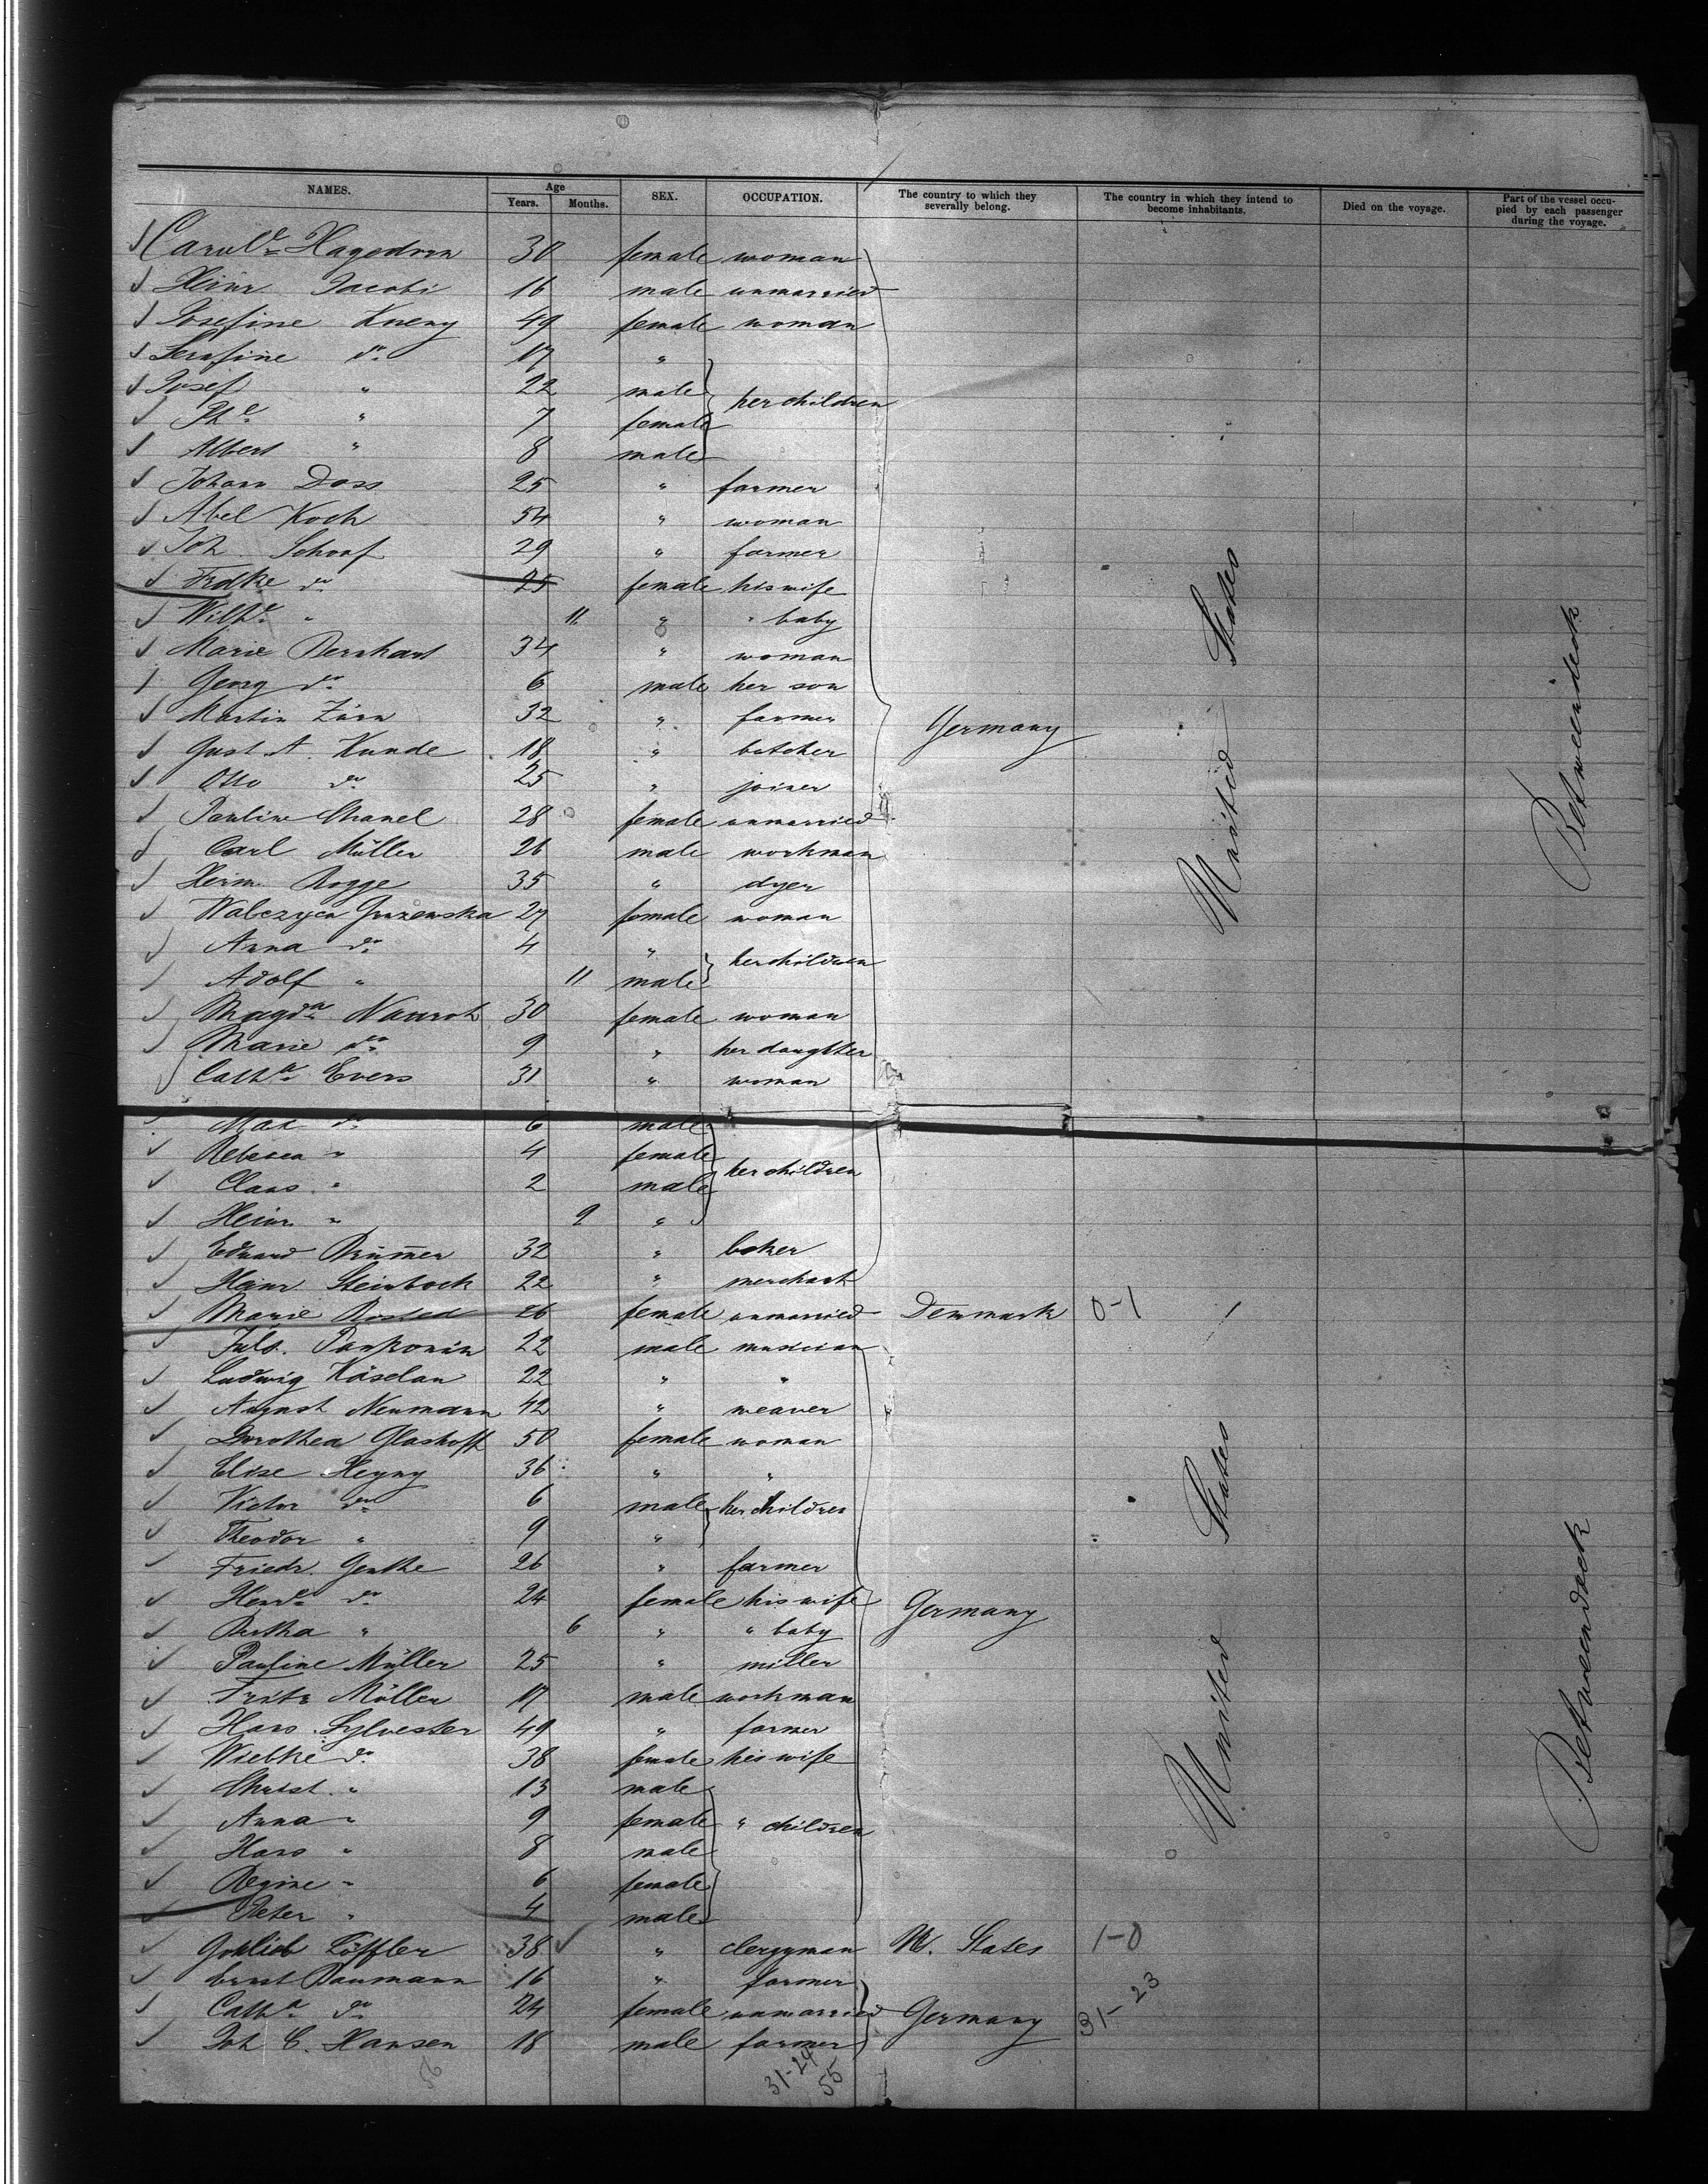 NAMES. Age Years. Months. SEX. OCCUPATION. The country to which they severally belong. The country in which they intend to become inhabitants. Died on the voyage. Part of the vessel occupied by each passenger during the voyage.
Hagedorn 30 female woman
Heinr Jacobi 16 male unmarried
Josefine Kneny 49 female woman
Serafine do 17 "
Josef " 22 male her children
" 7 female
Albert " 8 male
Johann Doss 25 " farmer
Abel Koch 54 " woman
Joh. Schoof 29 " farmer
Frdke do 25 female his wife
Wilhe " 11 " " baby
Marie Bernhard 34 " woman
Georg do 6 male her son
Martin Zürn 32 " farmer Germany United States Betweendeck
Gust A. Kunde 18 " butcher
Otto do 25 " joiner
Pauline 28 female unmarried
Carl Müller 26 male workman
Herm. Rogge 35 " dyer
27 female woman
Anna do 4 " her children
Adolf " 11 male
Magda 30 female woman
Marie do 9 " her daughter
Catha Evers 31 " woman
Max do 6 male
Rebecca " 4 female her children
Claus " 2 male
Heinr " 9 "
Eduard Brümmer 32 " baker
Heinr Steinbock 22 " merchant
Marie 26 female unmarried Denmark 0-1
Juls. 22 male musician
Ludwig Käselau 22 " "
August Neumann 42 " weaver
Dorothea Glashoff 50 female woman
Elise Heyny 36 " "
Victor do 6 male her children
Theodor " 9 "
Friedr. Genthe 26 " farmer
Henrte do 24 female his wife Germany United States Betweendeck
Bertha " 6 " " baby
Pauline Müller 25 " miller
Fritz Möller 17 male workman
Hans Sylvester 49 " farmer
Wiebke do 38 female his wife
Christ. " 13 male
Anna " 9 female " children
Hans " 8 male
Regine " 6 female
Peter " 4 male
Gottlieb Löffler 38 " clergyman U. States 1-0
Ernst Baumann 16 " farmer
Catha do 24 female unmarried Germany 31-23
Joh C. Hansen 18 male farmer
56 31-24
55